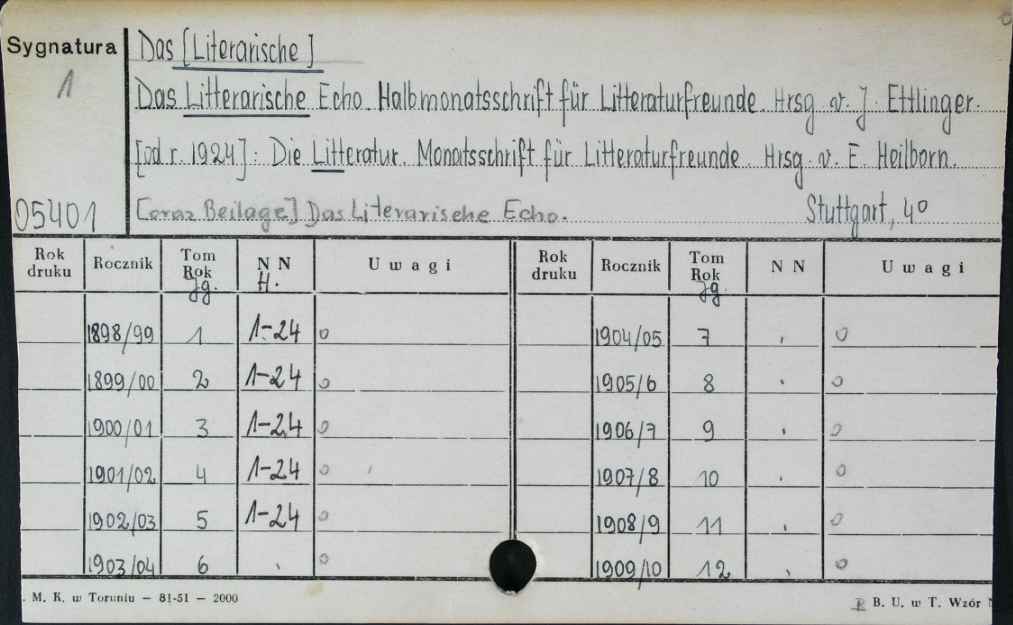 Sygnatura
1
05401
Das [Literarische]
Das Litterarische Echo. Halbmonatsschrift für Litteraturfreunde. Hrsg. v. J. Ettlinger.
[od r. 1924]: Die Litteratur. Monatsschrift für Litteraturfreunde. Hrsg. v. E. Heilborn.
[oraz Beilage] Das Literarische Echo. Stuttgart, 4°
Rok druku | Rocznik | Tom Rok Jg. | N N H. | Uwagi | Rok druku | Rocznik | Tom Rok Jg. | N N | Uwagi
1898/99 | 1 | 1-24 | o | 1904/05 | 7 | . | o
1899/00 | 2 | 1-24 | o | 1905/6 | 8 | . | o
1900/01 | 3 | 1-24 | o | 1906/7 | 9 | . | o
1901/02 | 4 | 1-24 | o | 1907/8 | 10 | . | o
1902/03 | 5 | 1-24 | o | 1908/9 | 11 | . | o
1903/04 | 6 | . | o | 1909/10 | 12 | . | o
. M. K. w Toruniu — 81-51 — 2000
B. U. w T. Wzór